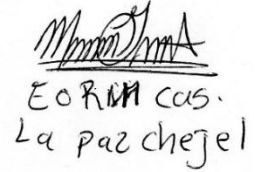 EORM cas.
La paz chejel